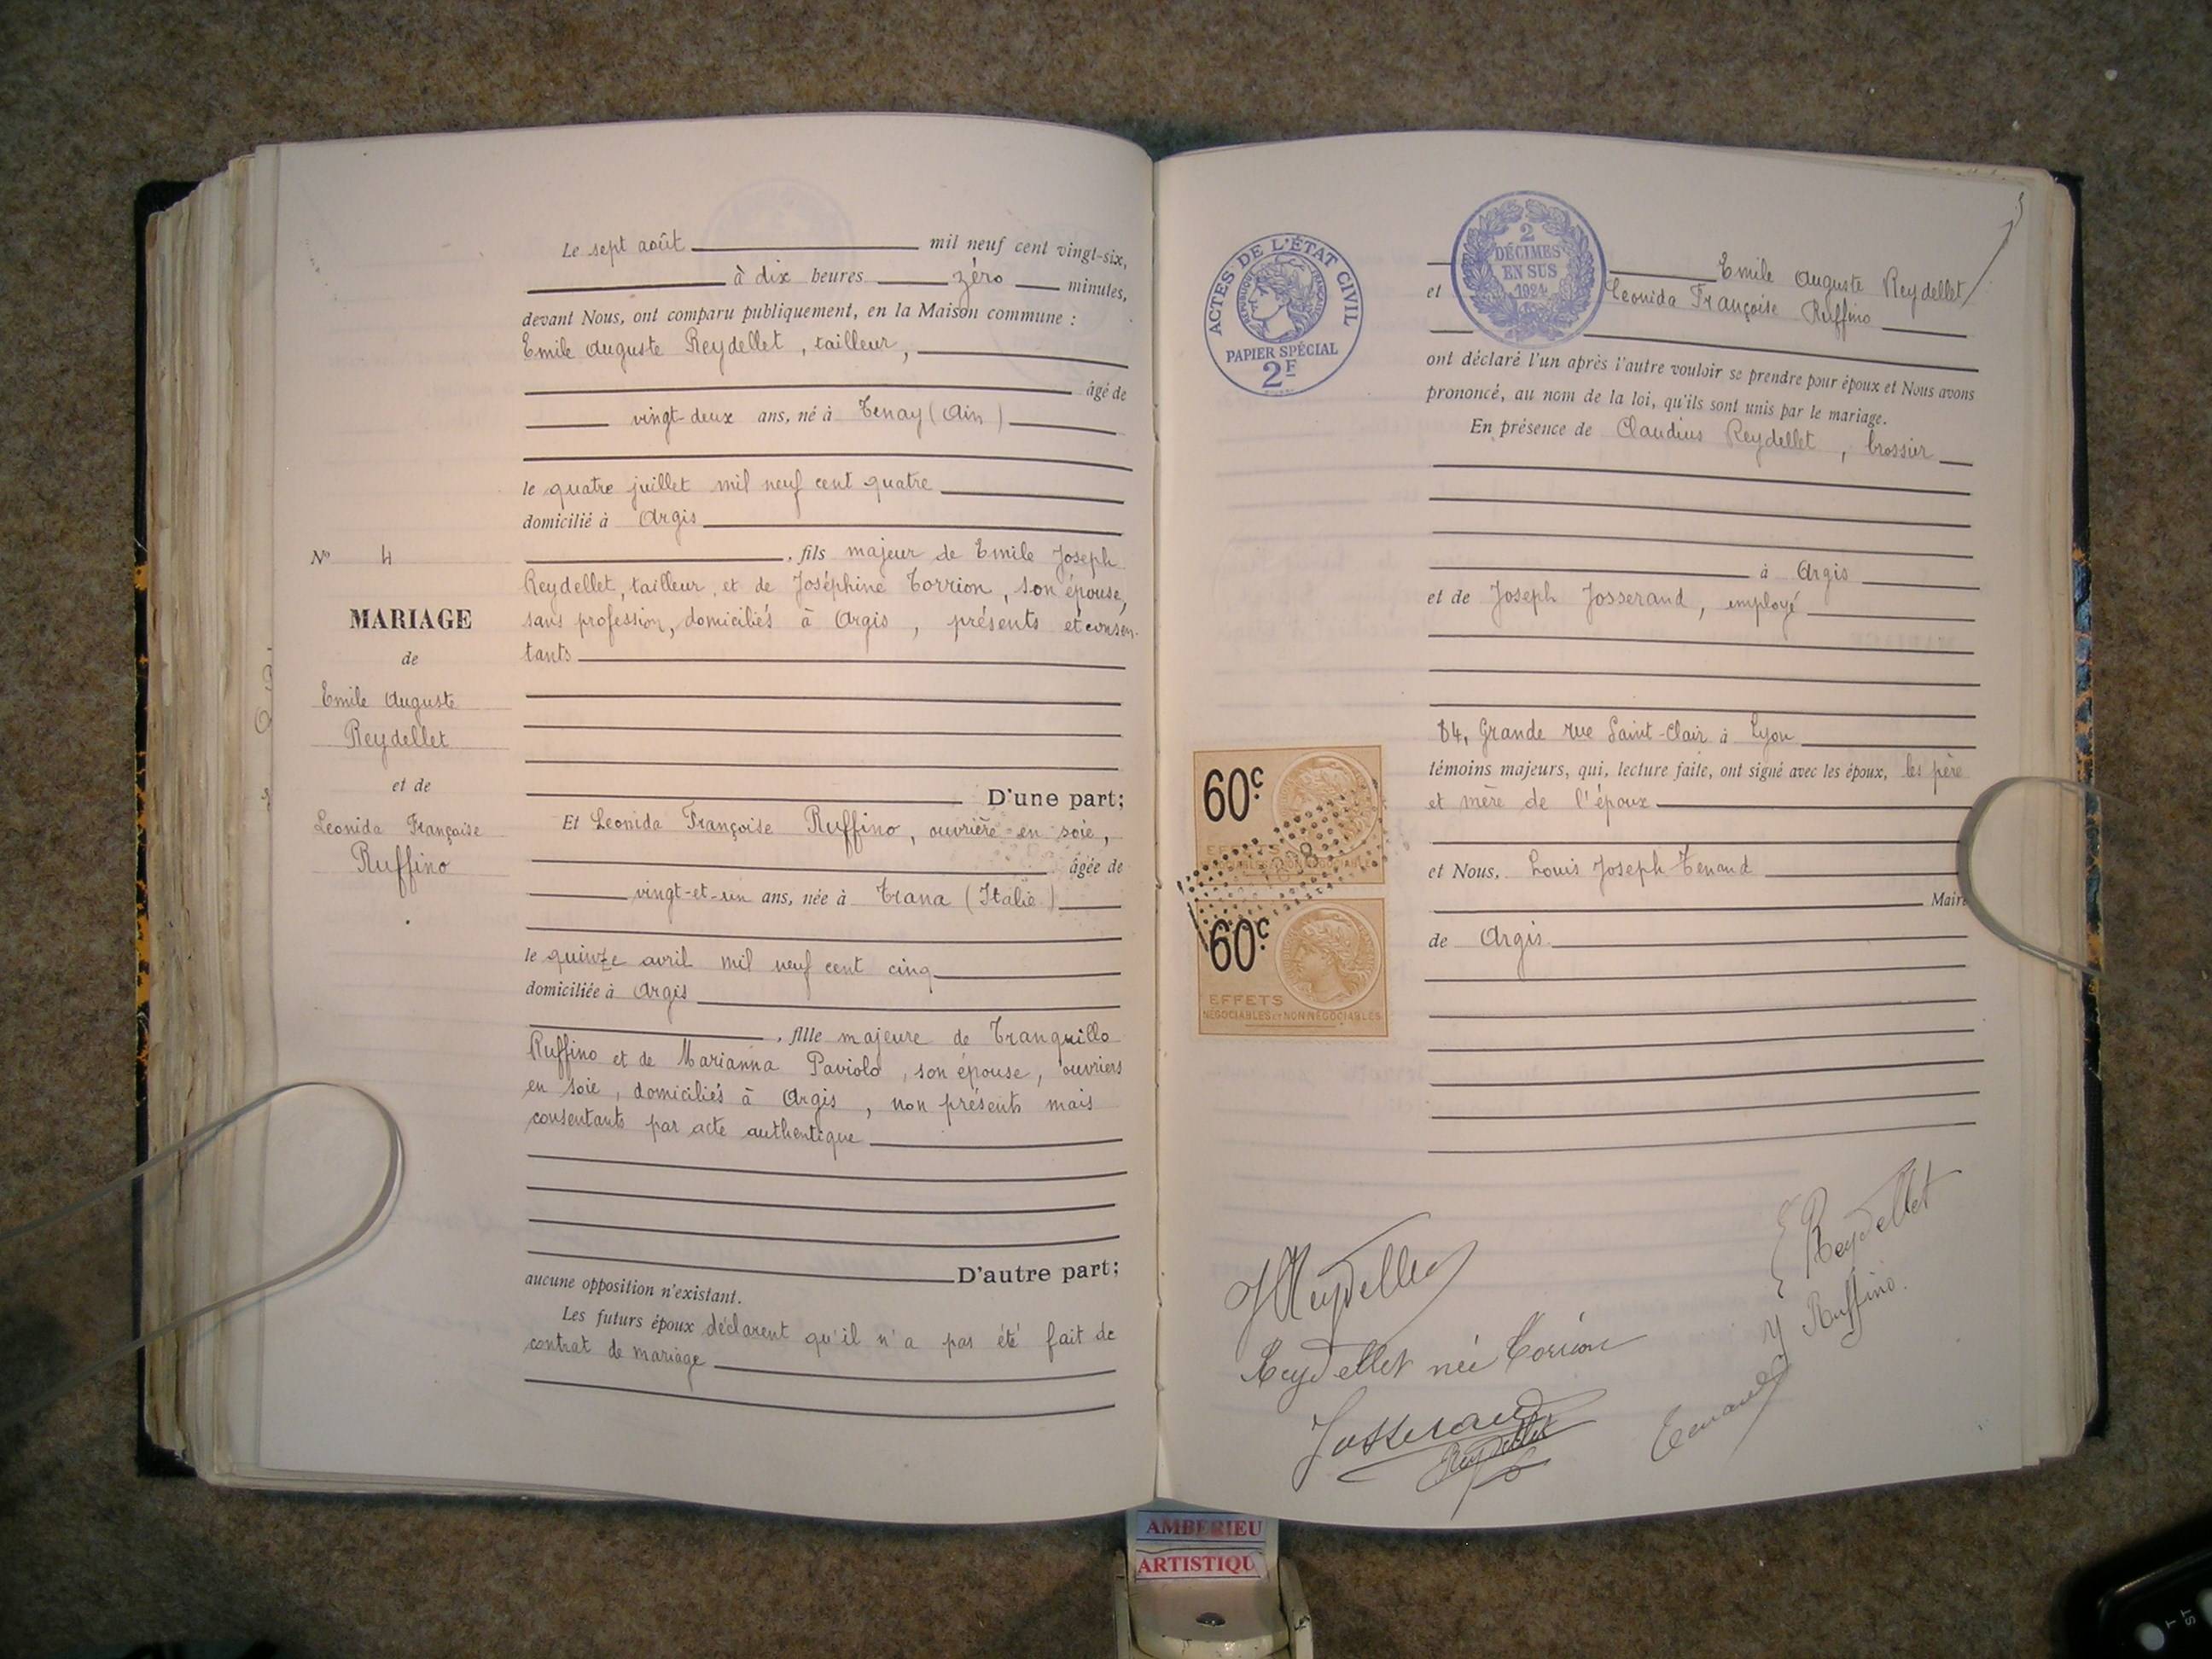 Le sept août mil neuf cent vingt-six,
à dix heures zéro minutes,
devant Nous, ont comparu publiquement, en la Maison commune :
Emile Auguste Reydellet, tailleur,
âgé de
vingt-deux ans, né à Tenay (Ain)
le quatre juillet mil neuf cent quatre
domicilié à Argis
, fils majeur de Emile Joseph
Reydellet, tailleur, et de Joséphine Torrion, son épouse,
sans profession, domiciliés à Argis, présents et consen-
tants
D'une part;
Et Leonida Françoise Ruffino, ouvrière en soie,
âgée de
vingt-et-un ans, née à Trana (Italie)
le quinze avril mil neuf cent cinq
domiciliée à Argis
, fille majeure de Tranquillo
Ruffino et de Marianna Paviolo, son épouse, ouvriers
en soie, domiciliés à Argis, non présents mais
consentants par acte authentique
D'autre part;
aucune opposition n'existant.
Les futurs époux déclarent qu'il n'a pas été fait de
contrat de mariage
N° 4
MARIAGE
de
Emile Auguste
Reydellet
et de
Leonida Françoise
Ruffino
ACTES DE L'ÉTAT CIVIL
RÉPUBLIQUE FRANÇAISE
PAPIER SPÉCIAL
2F
2
DÉCIMES
EN SUS
1924
Emile Auguste Reydellet
et Leonida Françoise Ruffino
ont déclaré l'un après l'autre vouloir se prendre pour époux et Nous avons
prononcé, au nom de la loi, qu'ils sont unis par le mariage.
En présence de Claudius Reydellet, brossier
à Argis
et de Joseph Josserand, employé
84, Grande rue Saint-Clair à Lyon
témoins majeurs, qui, lecture faite, ont signé avec les époux, les père
et mère de l'époux
et Nous, Louis Joseph Tenand
Maire
de Argis
60c
EFFETS
60c
EFFETS
NÉGOCIABLES ET NON NÉGOCIABLES
E Reydellet
Reydellet
Ruffino.
Reydellet née Torrion
Josserand
Reydellet
Tenand
AMBERIEU
ARTISTIQU